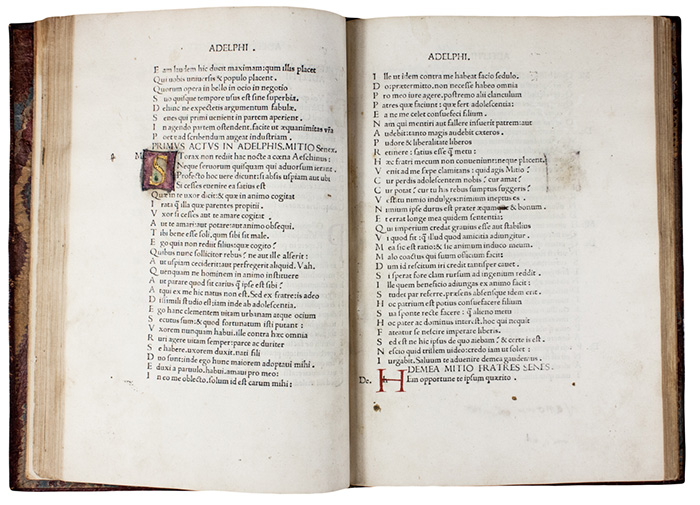 ADELPHI .
E am laudem hic ducit maximam: quum illis placet
Qui uobis uniuersis & populo placent.
Quorum opera in bello in ocio in negotio
S uo quisque tempore usus est sine superbia.
D ehinc ne expectetis argumentum fabulæ.
S enes qui primi uenient in partem aperient.
I n agendo partem ostendent. facite ut æquanimitas
P oetæ ad scribendum augeat industriam .
PRIMVS ACTVS IN ADELPHIS. MITIO Senex.
M S Torax non rediit hac nocte a cœna Aeschinus:
Neque seruorum quisquam qui aduorsum ierant.
Profecto hoc uere dicunt: si absis uspiam aut ubi
Si cesses euenire ea satius est
Quæ in te uxor dicit: & quæ in animo cogitat
I rata q̃ illa quæ parentes propitii.
V xor si cesses aut te amare cogitat
A ut te amari: aut potare: aut animo obsequi.
T ibi bene esse soli, quum sibi sit male.
E go quia non rediit filius: quæ cogito?
Q uibus nunc sollicitor rebus? ne aut ille alserit:
A ut uspiam ceciderit: aut perfregerit aliquid. Vah.
Q uenquam ne hominem in animo instituere
A ut parare quod sit carius q̃ ipse est sibi?
A tqui ex me hic natus non est. Sed ex fratre: is adeo
D issimili studio est iam inde ab adolescentia.
E go hanc clementem uitam urbanam atque ocium
S ecutus sum: & quod fortunatum isti putant:
V xorem nunquam habui. ille contra hæc omnia
R uri agere uitam semper: parce ac duriter
S e habere. uxorem duxit. nati filii
D uo sunt: inde ego hunc maiorem adoptaui mihi.
E duxi a paruulo. habui. amaui pro meo:
I n eo me oblecto. solum id est carum mihi:
ADELPHI .
I lle ut idem contra me habeat facio sedulo.
D o: prætermitto. non necesse habeo omnia
P ro meo iure agere. postremo alii clanculum
P atres quæ faciunt: quæ fert adolescentia:
E a ne me celet consuefeci filium.
N am qui mentiri aut fallere insuerit patrem: aut
A udebit: tanto magis audebit cæteros.
P udore & liberalitate liberos
R etinere: satius esse q̃ metu:
H æc fratri mecum non conueniunt: neque placent.
V enit ad me sepe clamitans: quid agis Mitio?
C ur perdis adolescentem nobis? cur amat?
C ur potat? cur tu his rebus sumptus suggeris?
V estitu nimio indulges: nimium ineptus es
N imium ipse durus est præter æquum & bonum.
E t errat longe mea quidem sententia:
Q ui imperium credat grauius esse aut stabilius
V i quod fit: q̃ illud quod amicitia adiungitur.
M ea sic est ratio: & sic animum induco meum.
M alo coactus qui suum officium facit:
D um id rescitum iri credit tantisper cauet.
S i sperat fore clam rursum ad ingenium redit
I lle quem beneficio adiungas ex animo facit:
S tudet par referre. præsens absensque idem erit.
H oc patrium est potius consuefacere filium
S ua sponte recte facere: q̃ alieno metu
H oc pater ac dominus interest. hoc qui nequit
F ateatur se nescire imperare liberis.
S ed est ne hic ipsus de quo aiebam? & certe is est.
N escio quid tristem uideo: credo iam ut solet:
I urgabit. Saluum te aduenire demea gaudemus.
DEMEA MITIO FRATRES SENES.
De. H Ein opportune te ipsum quærito .